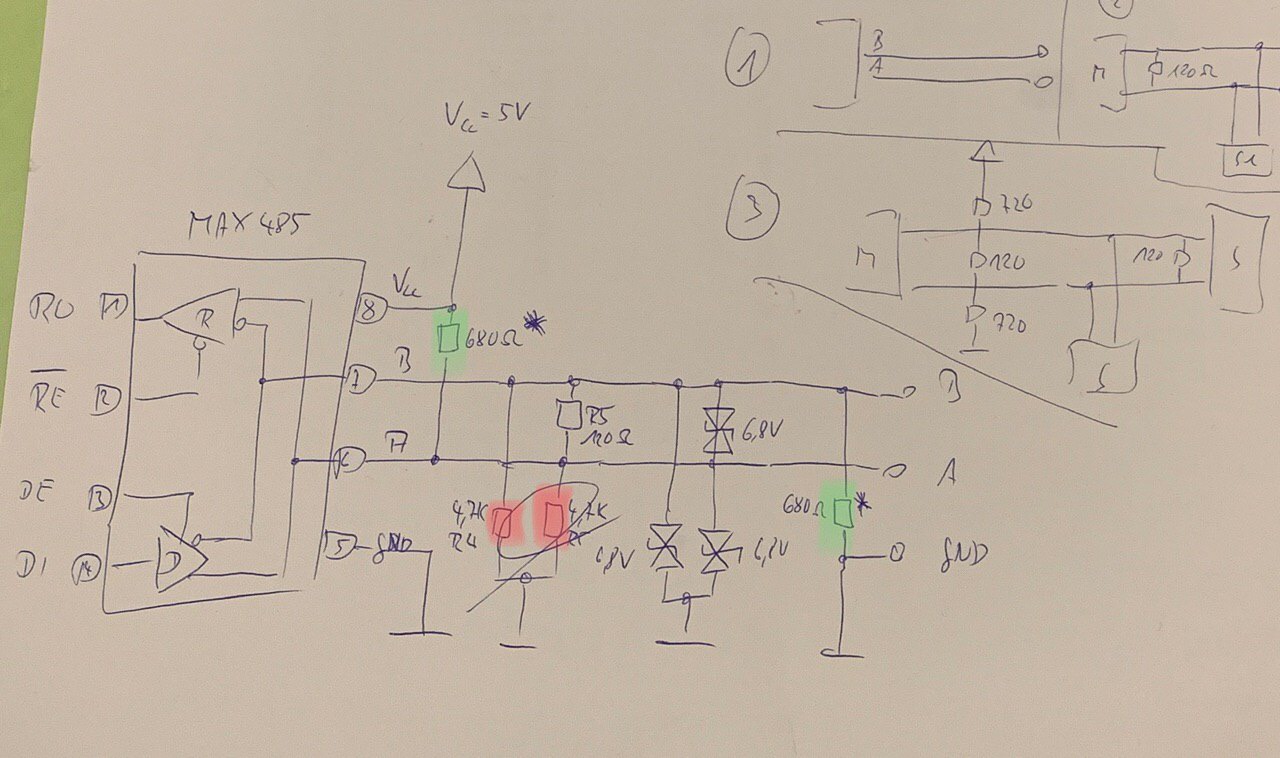 1
B
A
2
M
120Ω
S1
3
720
M
120
120
S
720
S
Vcc = 5V
MAX 485
RO 1
R
8 Vcc
680Ω *
RE 2
7 B
R5
120Ω
6,8V
B
6 A
A
DE 3
4,7K
R4
4,7K
6,8V
6,8V
680Ω *
DI 4
D
5 GND
GND